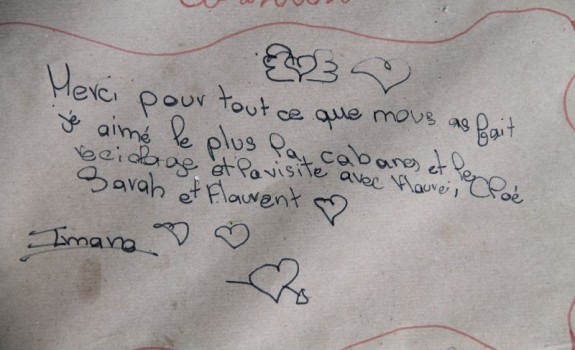 Merci pour tout ce que mous as fait
je aimé le plus la cabanes et le
reciclage et la visite avec Maurei, Cloé
Sarah et Flaurent
Imane